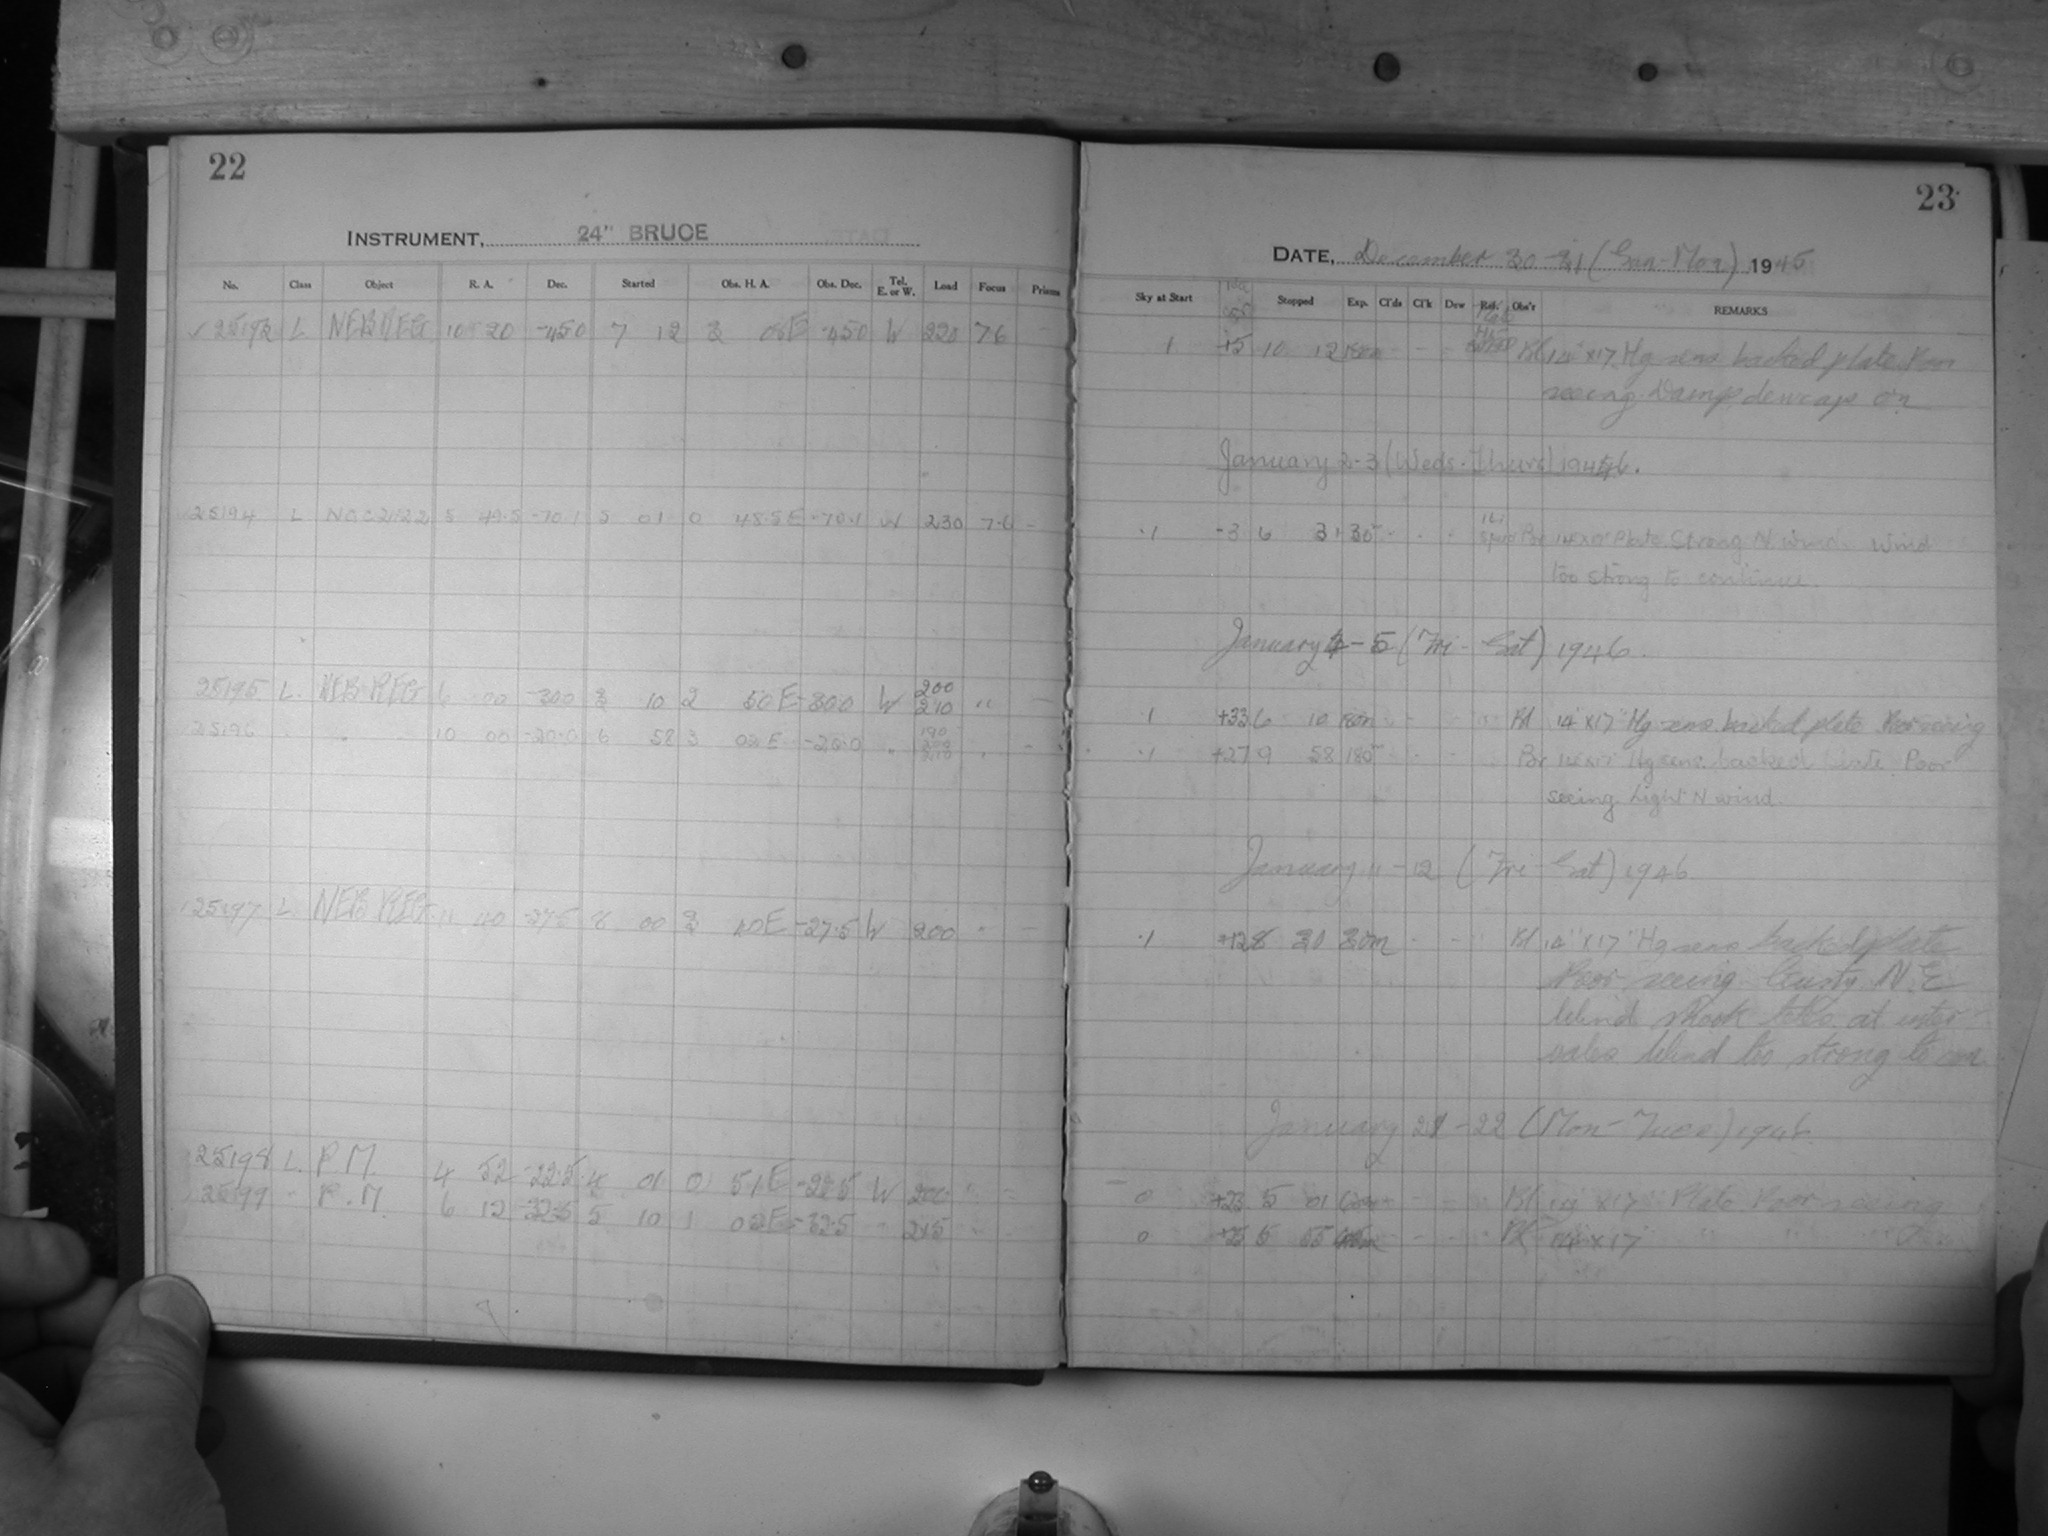 22
INSTRUMENT, 24" BRUCE
No. Class Object R. A. Dec. Started Obs. H. A. Obs. Dec. Tel. E. or W. Load Focus Prisms
L NEB REG 10 20 -45.0 7 12 3 08E -45.0 W 220 7.6
25194 L NGC 2122 5 49.5 -70.1 5 01 0 48.5 E -70.1 W 230 7.6 -
25195 L. NEB REG 6 00 -30.0 3 10 2 50E -30.0 W 200 210 " -
25196 " " 10 00 -20.0 6 58 3 02 E -20.0 " 190 200 210 " -
25197 L. NEB REG 11 40 -27.5 8 00 3 40E -27.5 W 200 " -
25198 L. P.M. 4 52 -22.5 4 01 0 51E -22.5 W 200 " -
25199 " P.M. 6 12 -32.5 5 10 1 02E -32.5 " 215 " -
23
DATE, December 30-31 (Sun-Mon) 1945
Sky at Start Stopped Exp. Cl'ds Cl'k Dew Ref. Obs'r REMARKS
1 +15 10 12 180m - - - Bl 14" x 17" Hg sens backed plate Poor
seeing. Damp, dewcaps on
January 2-3 (Weds-Thurs) 1946.
.1 -3 6 31 - - - Br 14x17 Plate Strong N winds wind
too strong to continue.
January 4-5 (Fri-Sat) 1946.
.1 +33 6 10 180m - - Bl 14" x 17" Hg sens. backed plate Poor seeing
.1 +27 9 58 180 - - - Br 14x17 Hg sens. backed plate Poor
seeing Light N wind.
January 11-12 (Fri-Sat) 1946
.1 +12 8 30 30m - - - Bl 14" x 17" Hg sens backed plate
Poor seeing Gusty N.E
Wind shook tube at inter-
vales Wind too strong to con
January 21-22 (Mon-Tues) 1946
0 +23 5 01 60m - - - Bl 14" x 17" Plate Poor seeing
0 +25 5 55 45m - - - Bl 14" x 17" " " "